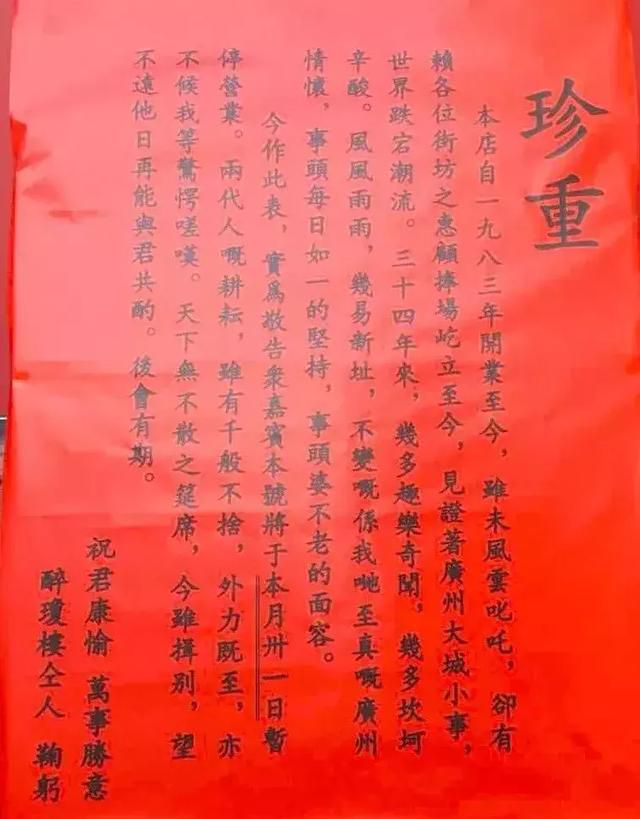 珍重
本店自一九八三年開業至今，雖未風雲叱吒，卻有
賴各位街坊之惠顧捧場屹立至今，見證著廣州大城小事，
世界跌宕潮流。三十四年來，幾多趣樂奇聞，幾多坎坷
辛酸。風風雨雨，幾易新址，不變嘅係我哋至真嘅廣州
情懷，事頭每日如一的堅持，事頭婆不老的面容。
今作此表，實為敬告衆嘉賓本號將于本月卅一日暫
停營業。兩代人嘅耕耘，雖有千般不捨，外力既至，亦
不候我等驚愕嗟嘆。天下無不散之筵席，今雖揖別，望
不遠他日再能與君共酌。後會有期。
祝君康愉 萬事勝意
醉瓊樓仝人 鞠躬